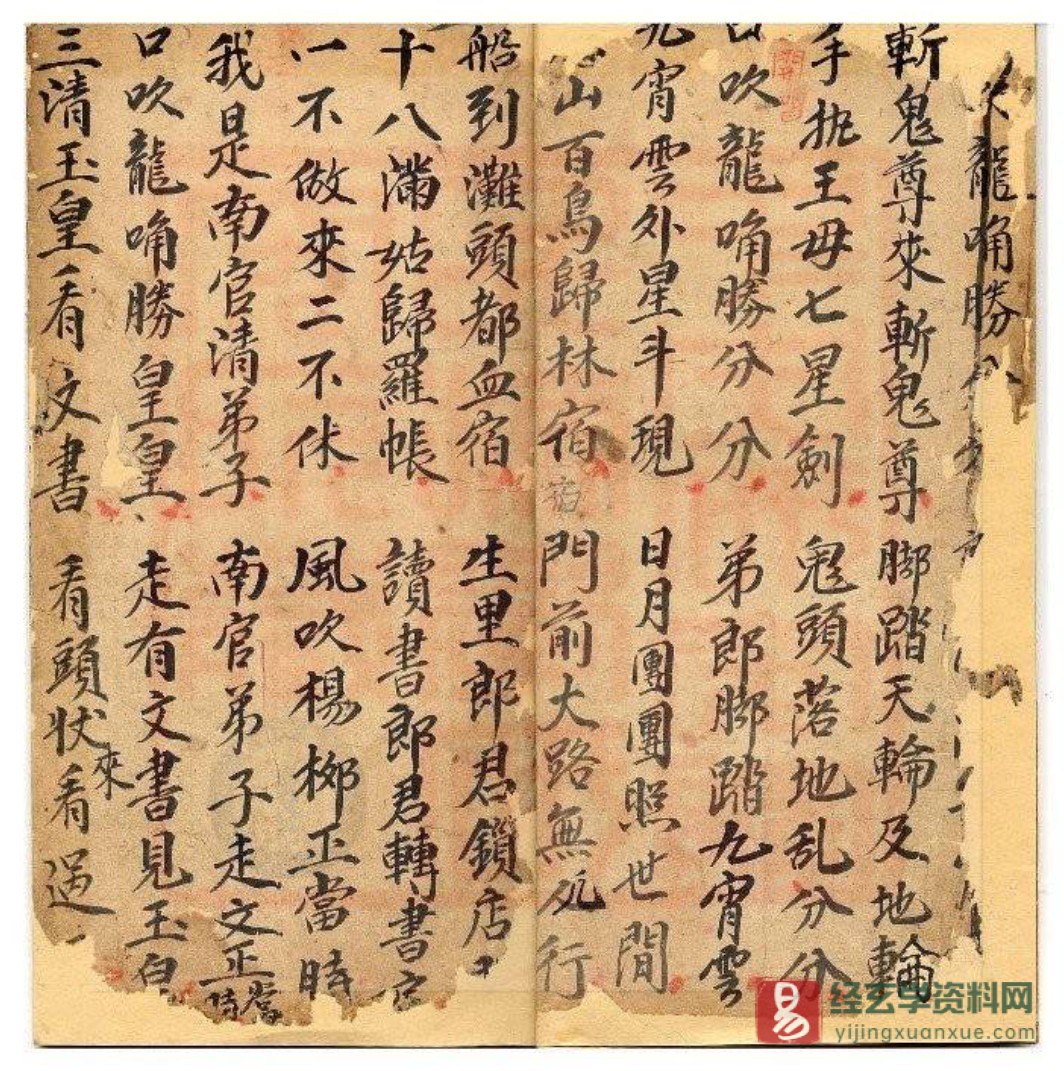 龍喃勝
斬鬼尊來斬鬼尊 脚踏天輪及地輪
手抳王母七星劍 鬼頭落地乱分分
口吹龍喃勝分分 弟郎脚踏九宵雲
九宵雲外星斗現 日月團團照世間
山百鳥歸林宿 門前大路無人行
船到灘頭都血宿 生里郎君鎖店
十八滿姑歸羅帳 讀書郎君轉書
一不做來二不休 風吹楊柳正當時
我是南官清弟子 南官弟子走文正當時
口吹龍喃勝皇皇 走有文書見玉皇
三清玉皇看文書 看頭狀來看過
易
经玄学资料网
yijingxuanxue.com